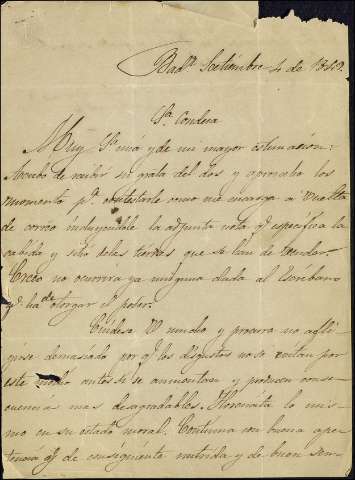 Bad.ⁿ Setiembre 4 de 1849.
Sª Condesa
Muy Sª mia y de mi mayor estimacion:
Acabo de recibir su grata del dos y aprovecho los
momentos pª contestarle como me encarga á vuelta
de correo incluyendole la adjunta nota qᵉ especifica la
cabida y sitio de las tierras que se han de vender.
Creo no ocurrira ya ninguna duda al Escribano
qᵉ ha de otorgar el poder.
Cuidese V mucho y procure no afli-
girse demasiado por qᵉ los disgustos no se evitan por
este medio antes si se aumentan y producen conse-
cuencias mas desagradables. Honorata lo mis-
mo en su estado moral. Continua con buena apa-
riencia qᵉ de consiguiente nutrida y de buen sem-